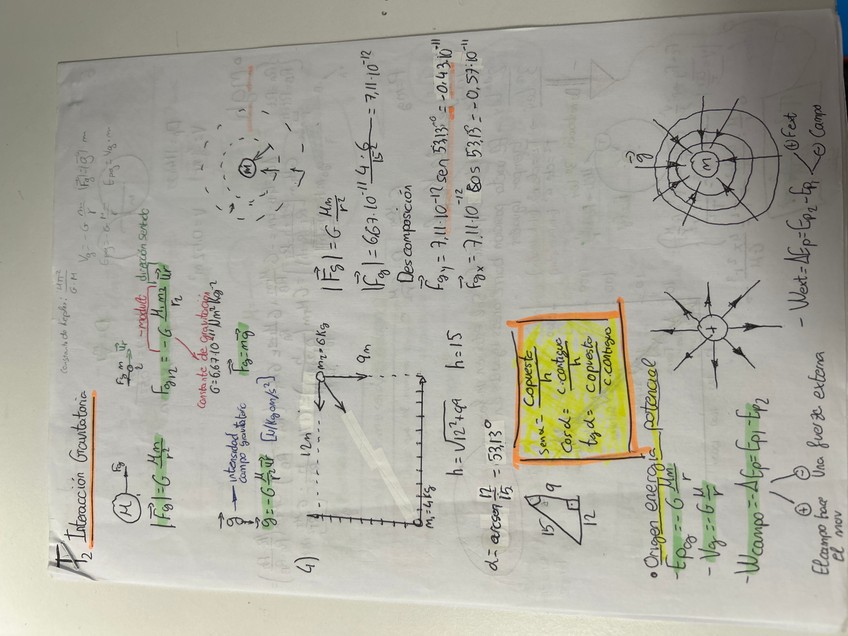 F2 Interacción Gravitatoria
M Fg
|Fg| = G Mm/r²
Fg m ur
Fg12 = -G M1m2/r² ur
-modulo dirección sentido
constante de gravitación
G=6,67·10⁻¹¹ N m² kg⁻²
g → intensidad campo gravitatorio
g = -G M/r² ur [N/kg o m/s²]
Fg = mg
M
4)
12m
m2=6kg
9m
m1=4kg
|Fg| = G Mm/r²
|Fg| = 6,67·10⁻¹¹ 4·6/15² = 7,11·10⁻¹²
Descomposición
Fgy = 7,11·10⁻¹² sen 53,13º = -0,43·10⁻¹¹
Fgx = 7,11·10⁻¹² cos 53,13 = -0,57·10⁻¹¹
h = √12²+9² h = 15
α = arcsen 12/15 = 53,13º
15 9
12
sen α = c.opuesto/h
cos α = c.contiguo/h
tg α = c.opuesto/c.contiguo
• Origen energía potencial
- Epg = -G Mm/r
- Vg = -G M/r
- Wcampo = -ΔEp = Ep1 - Ep2
⊕ ⊖
El campo hace el mov
Una fuerza externa
+
g
m
- Wext = ΔEp = Ep2 - Ep1
⊕ Fext
⊖ Campo